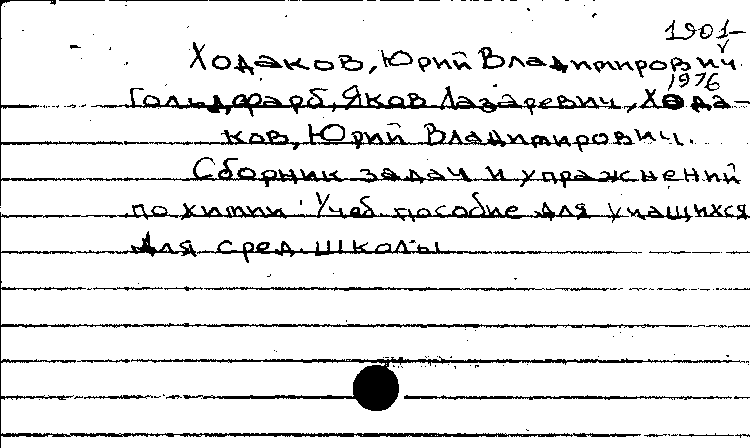 1901-
Ходаков, Юрий Владимирович
1976
Гольдфарб, Яков Лазаревич, Хода-
ков, Юрий Владимирович.
Сборник задач и упражнений
по химии: Учеб. пособие для учащихся
для сред. школы